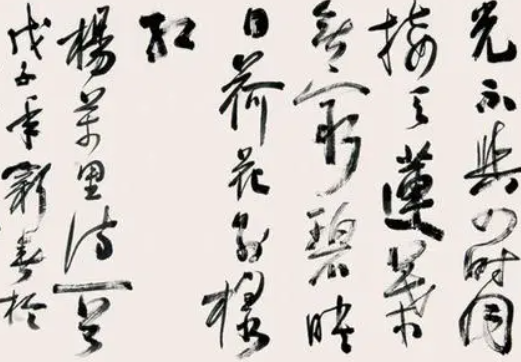 光不與四時同
接天蓮葉
無窮碧映
日荷花別樣
紅
楊萬里詩一首
戊子年新春於